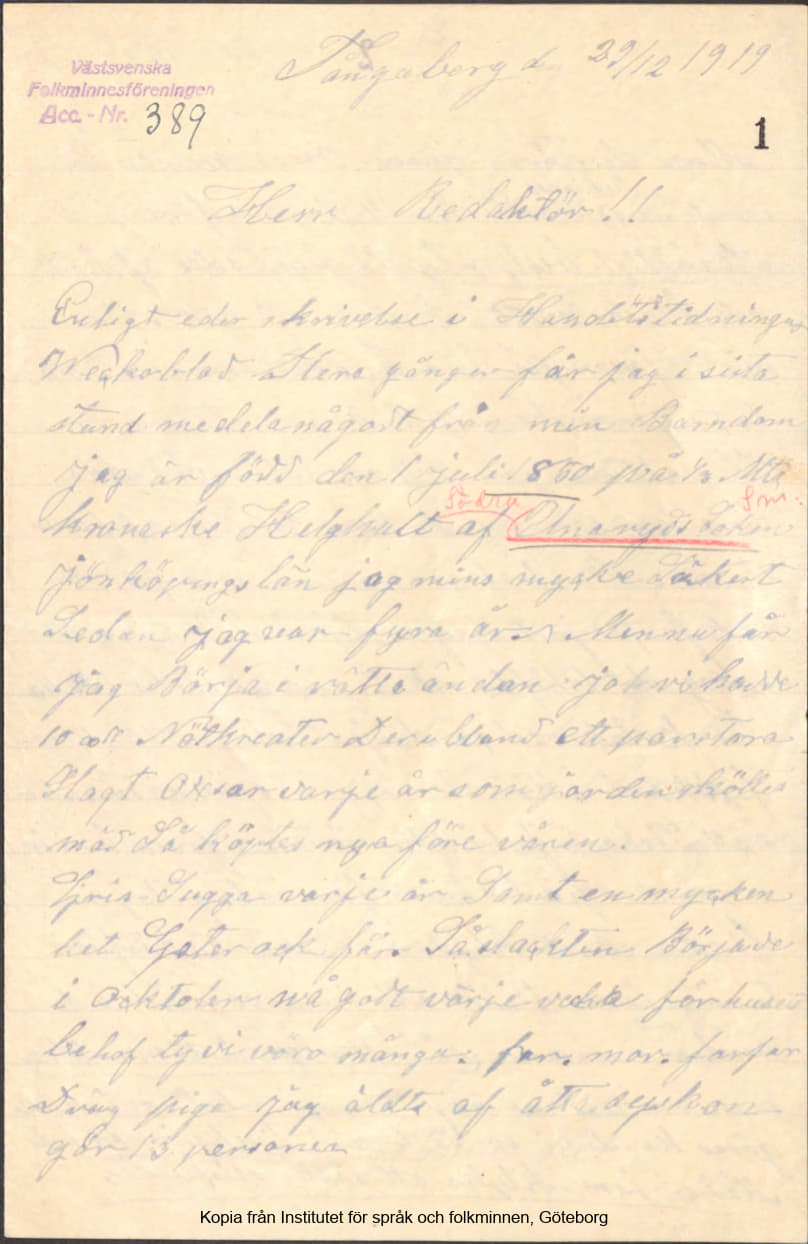 Västsvenska
Folkminnesföreningen
Acc. - Nr. 389
Tångaberg d. 29/12 1919
1
Herr Redaktör!!
Enligt eder skrivelse i Handelstidningens
Weckoblad flera gånger får jag i sista
stund medela någodt från min Barndom
jag är född den 1 juli 1860 på 1/2 Mtl
Södra Sm.
krono af Unnaryds Soken
Jönköpings län jag mins mycke Säkert
Sedan jag var fyra år Men nu får
jag Börja i rätta ändan jo vi hadde
10 a 11 Nötkreatur Derubland ett par stora
Slagt Oxsar varje år som jorden sköttes
mäd Så köptes nya före våren.
Gris Sugga varje år Samt en mycken
het Geter ock får. Så slackten Började
i Ocktober någodt varje vecka för huses
behof ty vi voro många: far. mor. farfar
Dräng piga jag äldts af åtta syskon
gör 13 personer
Kopia från Institutet för språk och folkminnen, Göteborg